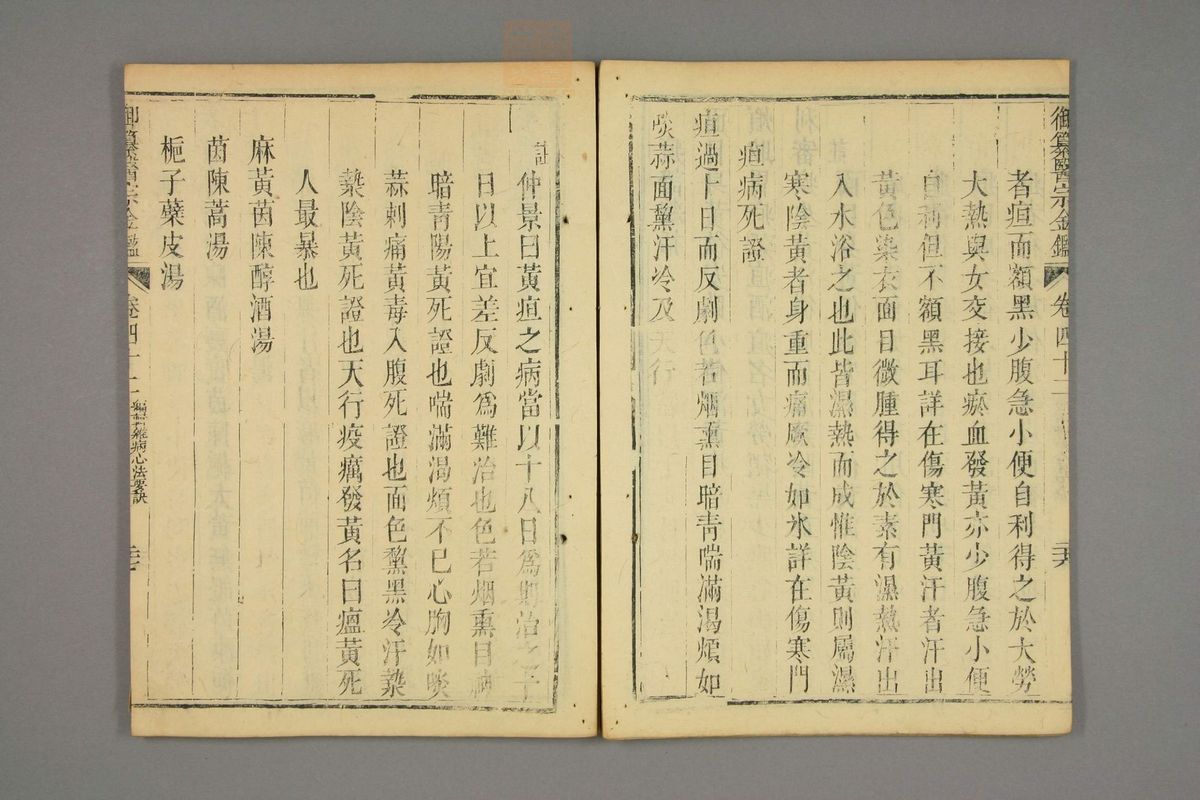 御纂醫宗金鑑 卷四十二
者疸而額黑少腹急小便自利得之於大勞
大熱與女交接也瘀血發黃亦少腹急小便
自利但不額黑耳詳在傷寒門黃汗者汗出
黃色染衣面目微腫得之於素有濕熱汗出
入水浴之也此皆濕熱而成惟陰黃則屬濕
寒陰黃者身重而痛厥冷如氷詳在傷寒門
疸病死證
疸過十日而反劇色若烟熏目暗青喘滿渴煩如
啖蒜面黧汗冷及天行
註仲景曰黃疸之病當以十八日為期治之十
日以上宜差反劇為難治也色若烟熏目神
暗青陽黃死證也喘滿渴煩不已心胸如啖
蒜刺痛黃毒入腹死證也面色黧黑冷汗漐
漐陰黃死證也天行疫癘發黃名曰瘟黃死
人最暴也
麻黃茵陳醇酒湯
茵陳蒿湯
梔子蘗皮湯
御纂醫宗金鑑 卷四十二 編輯雜病心法要訣